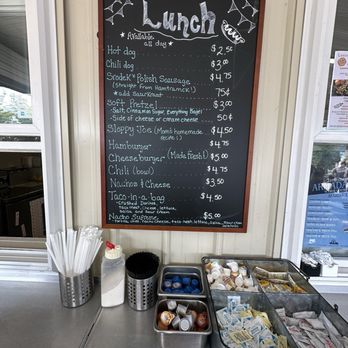 Lunch
* Available all day *
Hot dog $2.50
Chili dog $3.00
Srodek's Polish Sausage $4.75
(straight from Hamtramck!)
* add Saurkraut 75¢
Soft Pretzel $3.00
- Salt, Cinnamon Sugar, Everything Bagel
- Side of cheese or cream cheese 50¢
Sloppy Joe (Mom's homemade recipe!) $4.50
Hamburger $4.75
Cheeseburger (Made fresh!) $5.00
Chili (bowl) $4.75
Nachos & Cheese $3.50
Taco-in-a-bag $4.50
- Crushed Doritos, taco meat, cheese, lettuce, salsa and sour cream
Nacho Supreme $5.00